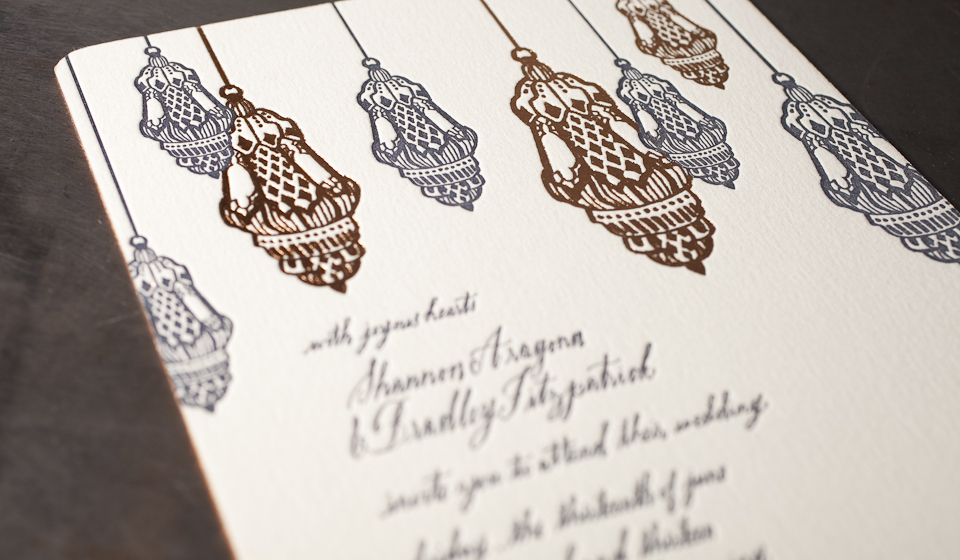 with joyous hearts
Shannon Aragonn
& Bradley Fitzpatrick
invite you to attend their wedding
the thirteenth of june
thirteen